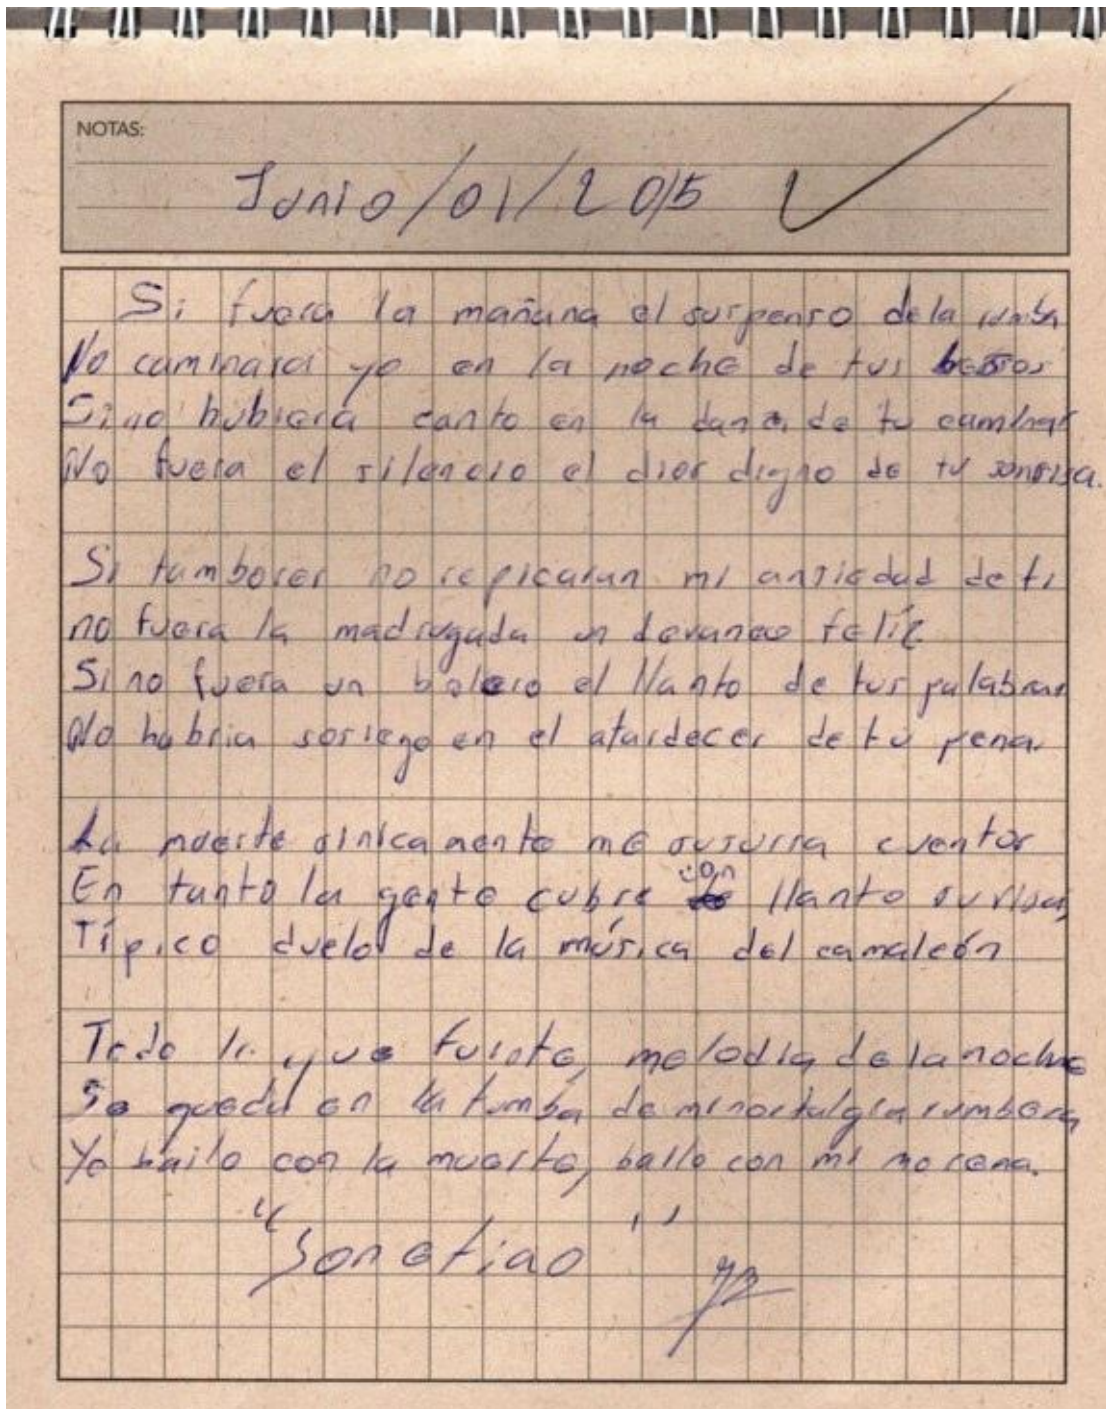 NOTAS:
Junio/01/2015
Si fuera la mañana el suspenso de la rumba
No caminara yo en la noche de tus besos
Si no hubiera canto en la danza de tu caminar
No fuera el silencio el dios digno de tu sonrisa.
Si tambores no repicaran mi ansiedad de ti
no fuera la madrugada un devaneo felíz
Si no fuera un bolero el llanto de tus palabras
No habria sosiego en el atardecer de tu pena.
La muerte sinicamente me susurra cuentos
En tanto la gente cubre con llanto su risa,
Típico duelo de la música del camaleón
Todo lo que fuiste, melodia de la noche
Se quedó en la tumba de mi nostalgia rumbera
Yo bailo con la muerte, bailo con mi morena.
"Sonetiao"